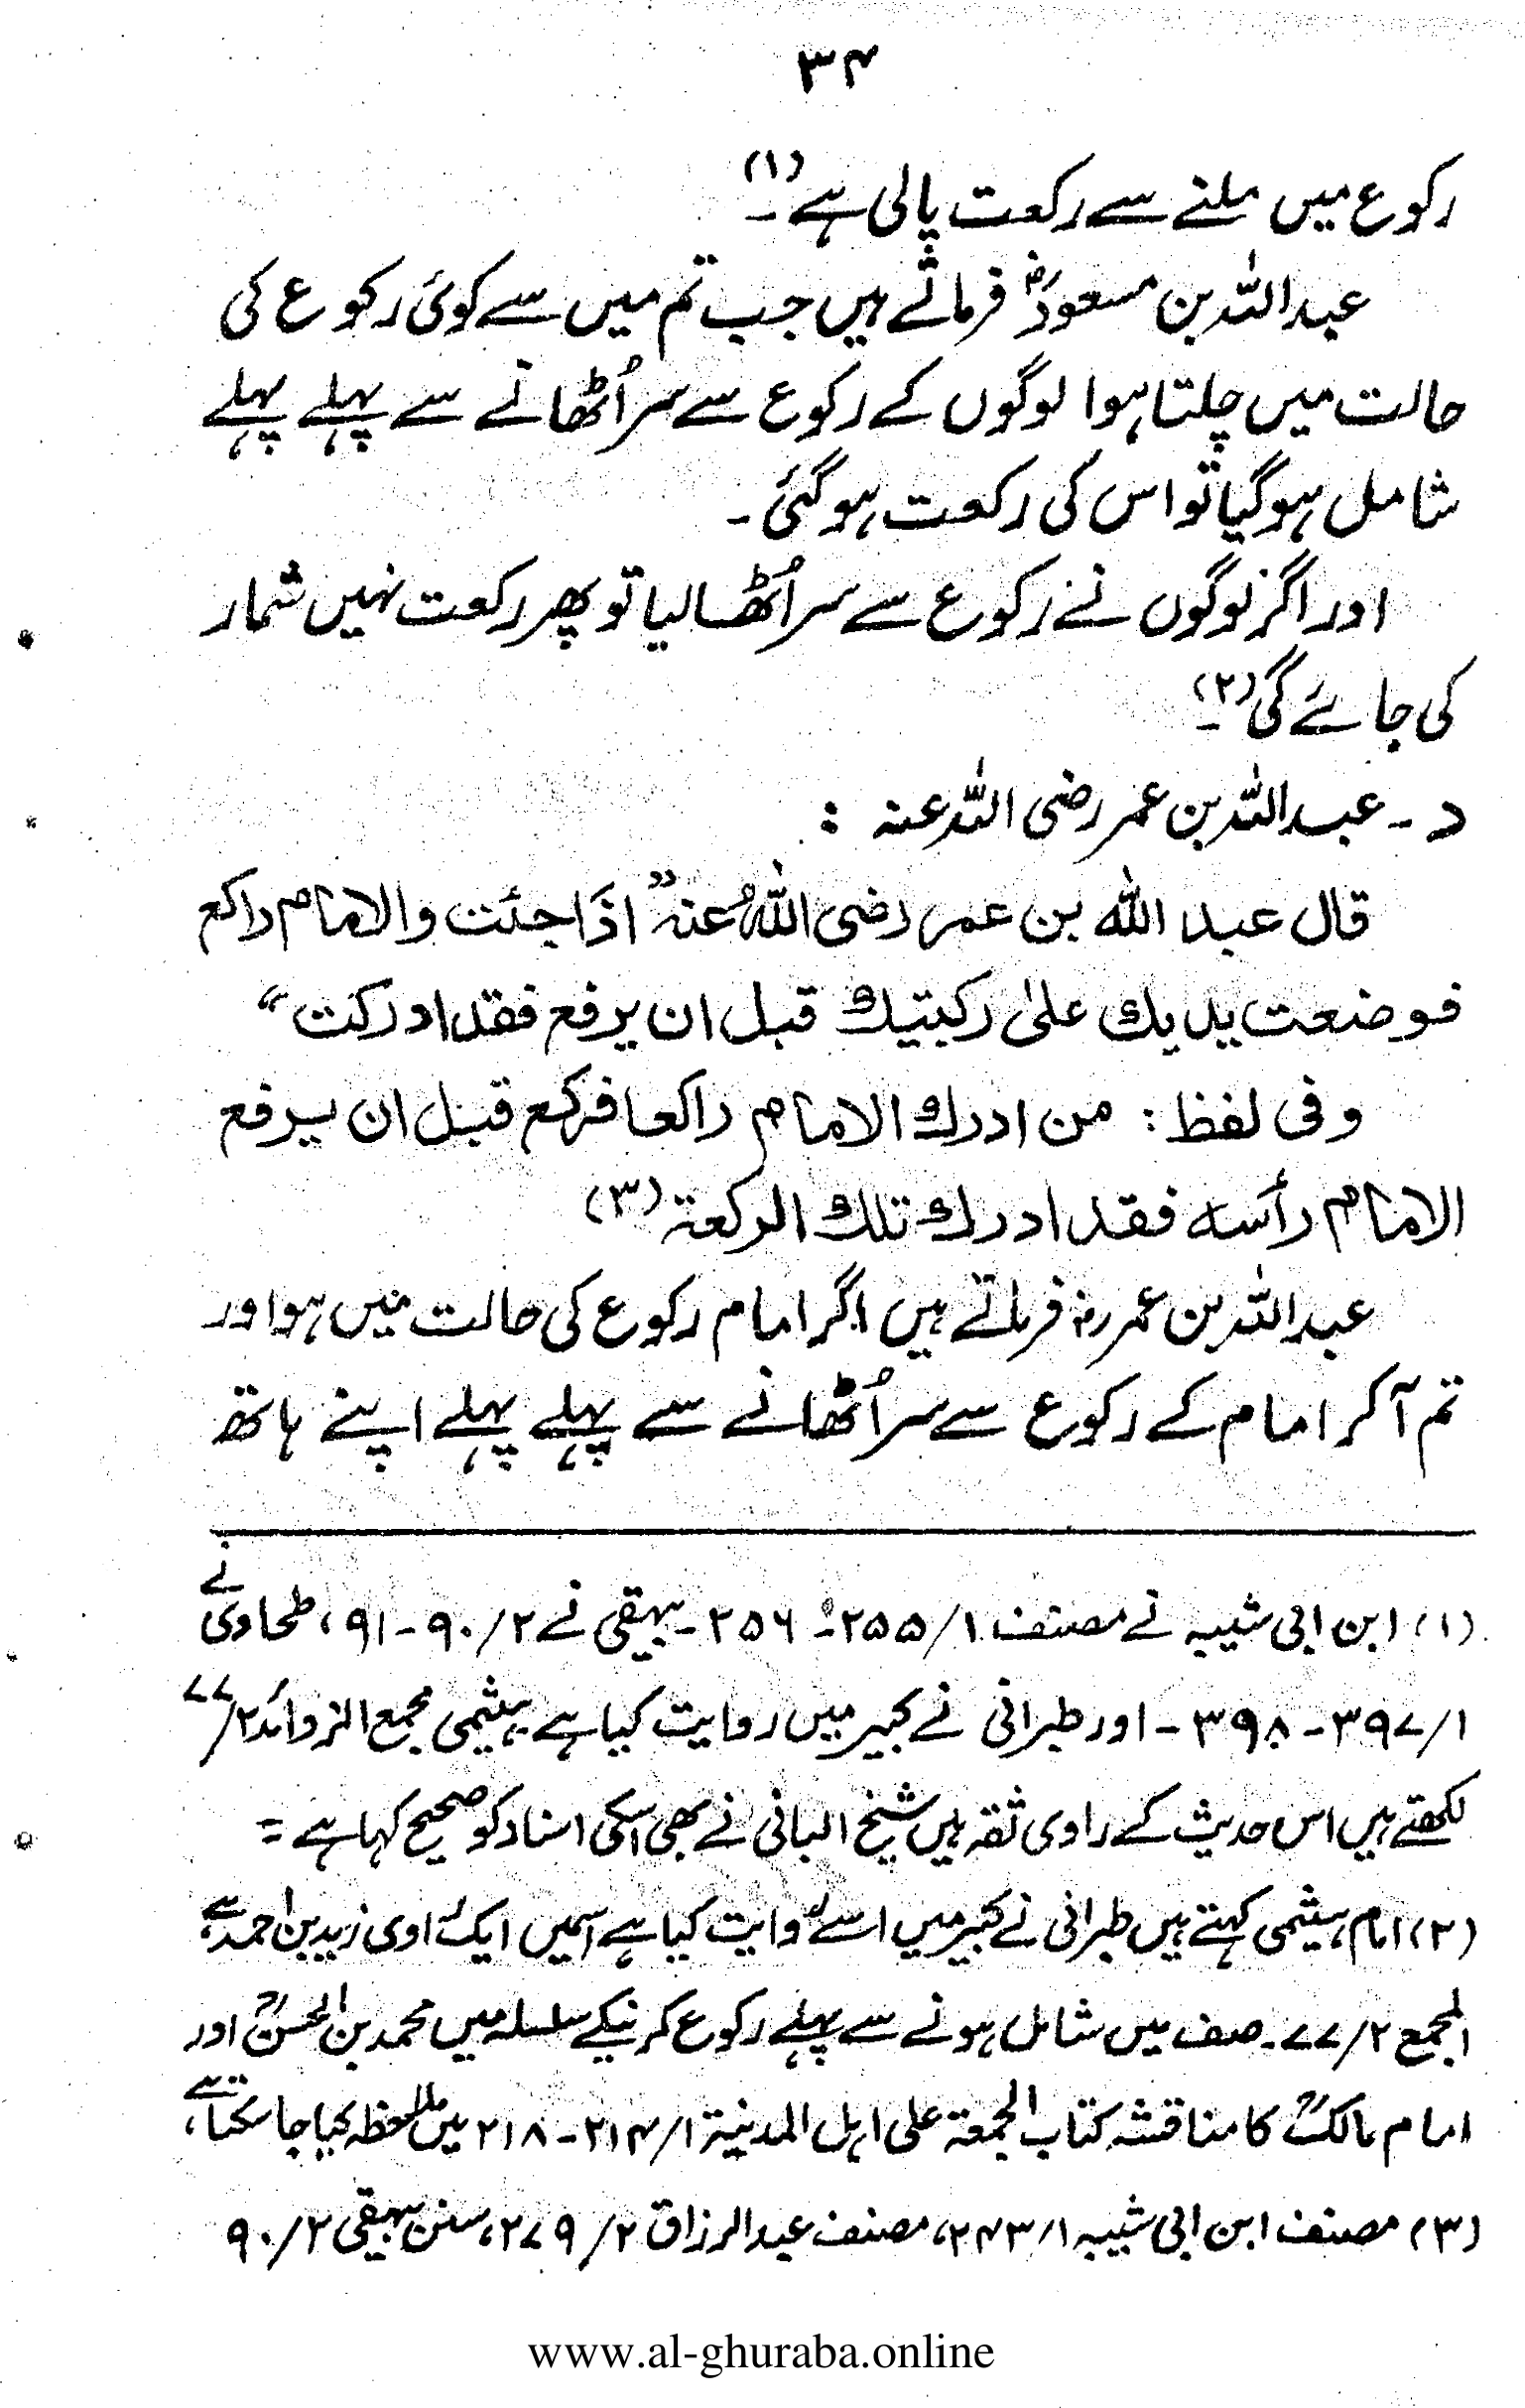 ۳۴
رکوع میں ملنے سے رکعت پالی ہے (۱)۔
عبداللہ بن مسعودؓ فرماتے ہیں جب تم میں سے کوئی رکوع کی
حالت میں چلتا ہوا لوگوں کے رکوع سے سر اُٹھانے سے پہلے پہلے
شامل ہوگیا تو اس کی رکعت ہوگئی ۔
اور اگر لوگوں نے رکوع سے سر اُٹھا لیا تو پھر رکعت نہیں شمار
کی جائے گی (۲)۔
د ۔ عبداللہ بن عمر رضی اللہ عنہ :
قال عبد اللہ بن عمر رضی اللہُ عنہ ”اذَا جئت والامام راکع
فوضعت یدیك علیٰ رکبتیك قبل ان یرفع فقد ادرکت“
وفی لفظ : من ادرك الامام راکعا فرکع قبل ان یرفع
الامام رأسه فقد ادرك تلك الرکعة (۳)
عبداللہ بن عمر رضؓ فرماتے ہیں اگر امام رکوع کی حالت میں ہو اور
تم آکر امام کے رکوع سے سر اُٹھانے سے پہلے پہلے اپنے ہاتھ
(۱) ابن ابی شیبہ نے مصنف ۱/۲۵۵۔۲۵۶۔ بیہقی نے ۲/۹۰۔۹۱، طحاوی نے
۱/۳۹۷۔۳۹۸۔ اور طبرانی نے کبیر میں روایت کیا ہے ہیثمی مجمع الزوائد ۲/۷۷
لکھتے ہیں اس حدیث کے راوی ثقہ ہیں شیخ البانی نے بھی اسکی اسناد کو صحیح کہا ہے =
(۲) امام ہیثمی کہتے ہیں طبرانی نے کبیر میں اسے روایت کیا ہے اسمیں ایک راوی زید بن احمد ہے،
المجمع ۲/۷۷۔ صف میں شامل ہونے سے پہلے رکوع کرنیکے سلسلہ میں محمد بن الحسنؒ اور
امام مالکؒ کا مناقشہ کتاب الجمعۃ علی اہل المدنیۃ ۱/۲۱۴۔۲۱۸ میں ملاحظہ کیا جا سکتا ہے،
(۳) مصنف ابن ابی شیبہ ۱/۲۴۳، مصنف عبدالرزاق ۲/۲۷۹، سنن بیہقی ۲/۹۰
www.al-ghuraba.online